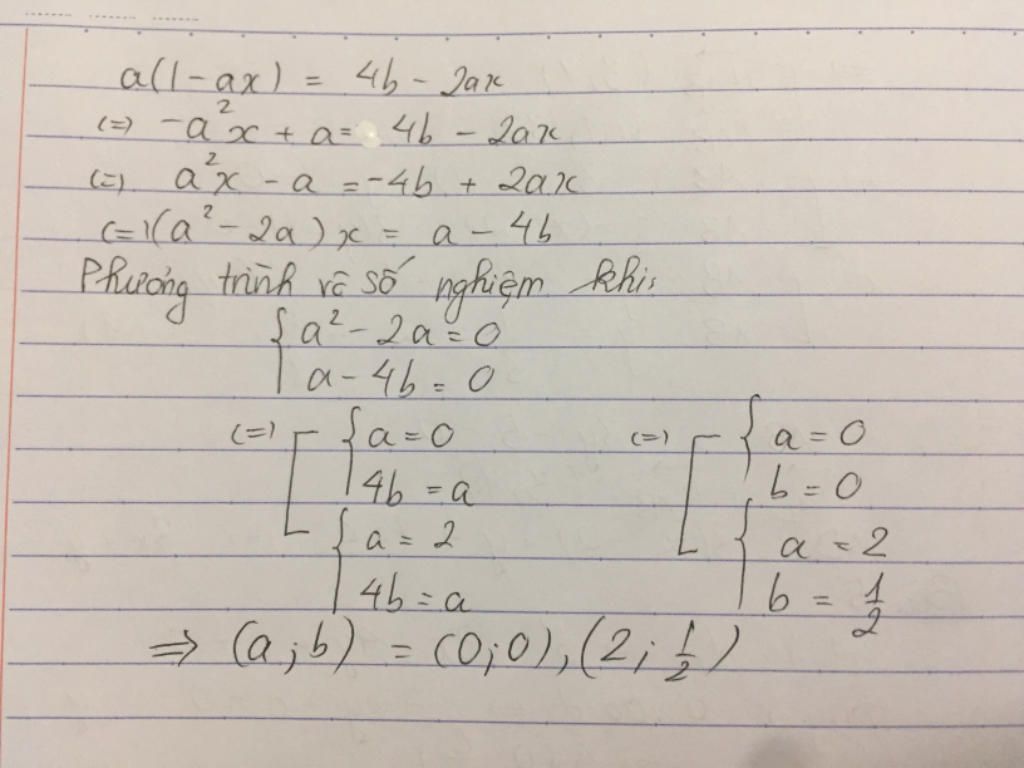 a(1-ax) = 4b - 2ax
(=) -a²x + a = 4b - 2ax
(=) a²x - a = -4b + 2ax
(=) (a² - 2a)x = a - 4b
Phương trình vô số nghiệm khi:
{ a² - 2a = 0
a - 4b = 0
(=) [ { a = 0 (=) [ { a = 0
4b = a b = 0
{ a = 2 { a = 2
4b = a b = 1/2
=> (a;b) = (0;0), (2; 1/2)